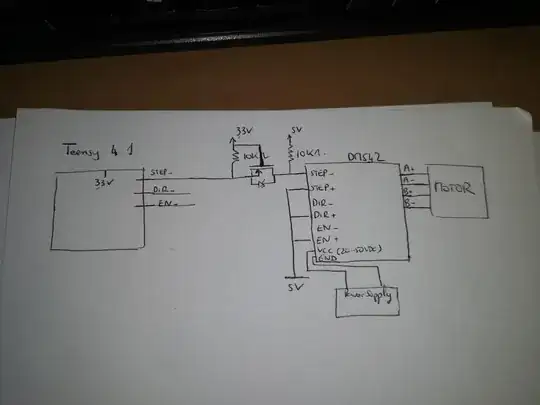 Teensy 4 1
33V
STEP-
DIR-
EN-
33V
10K
5V
10K
DM542
STEP-
STEP+
DIR-
DIR+
EN-
EN+
VCC (20-50VDC)
GND
5V
A+
A-
B+
B-
MOTOR
Power Supply